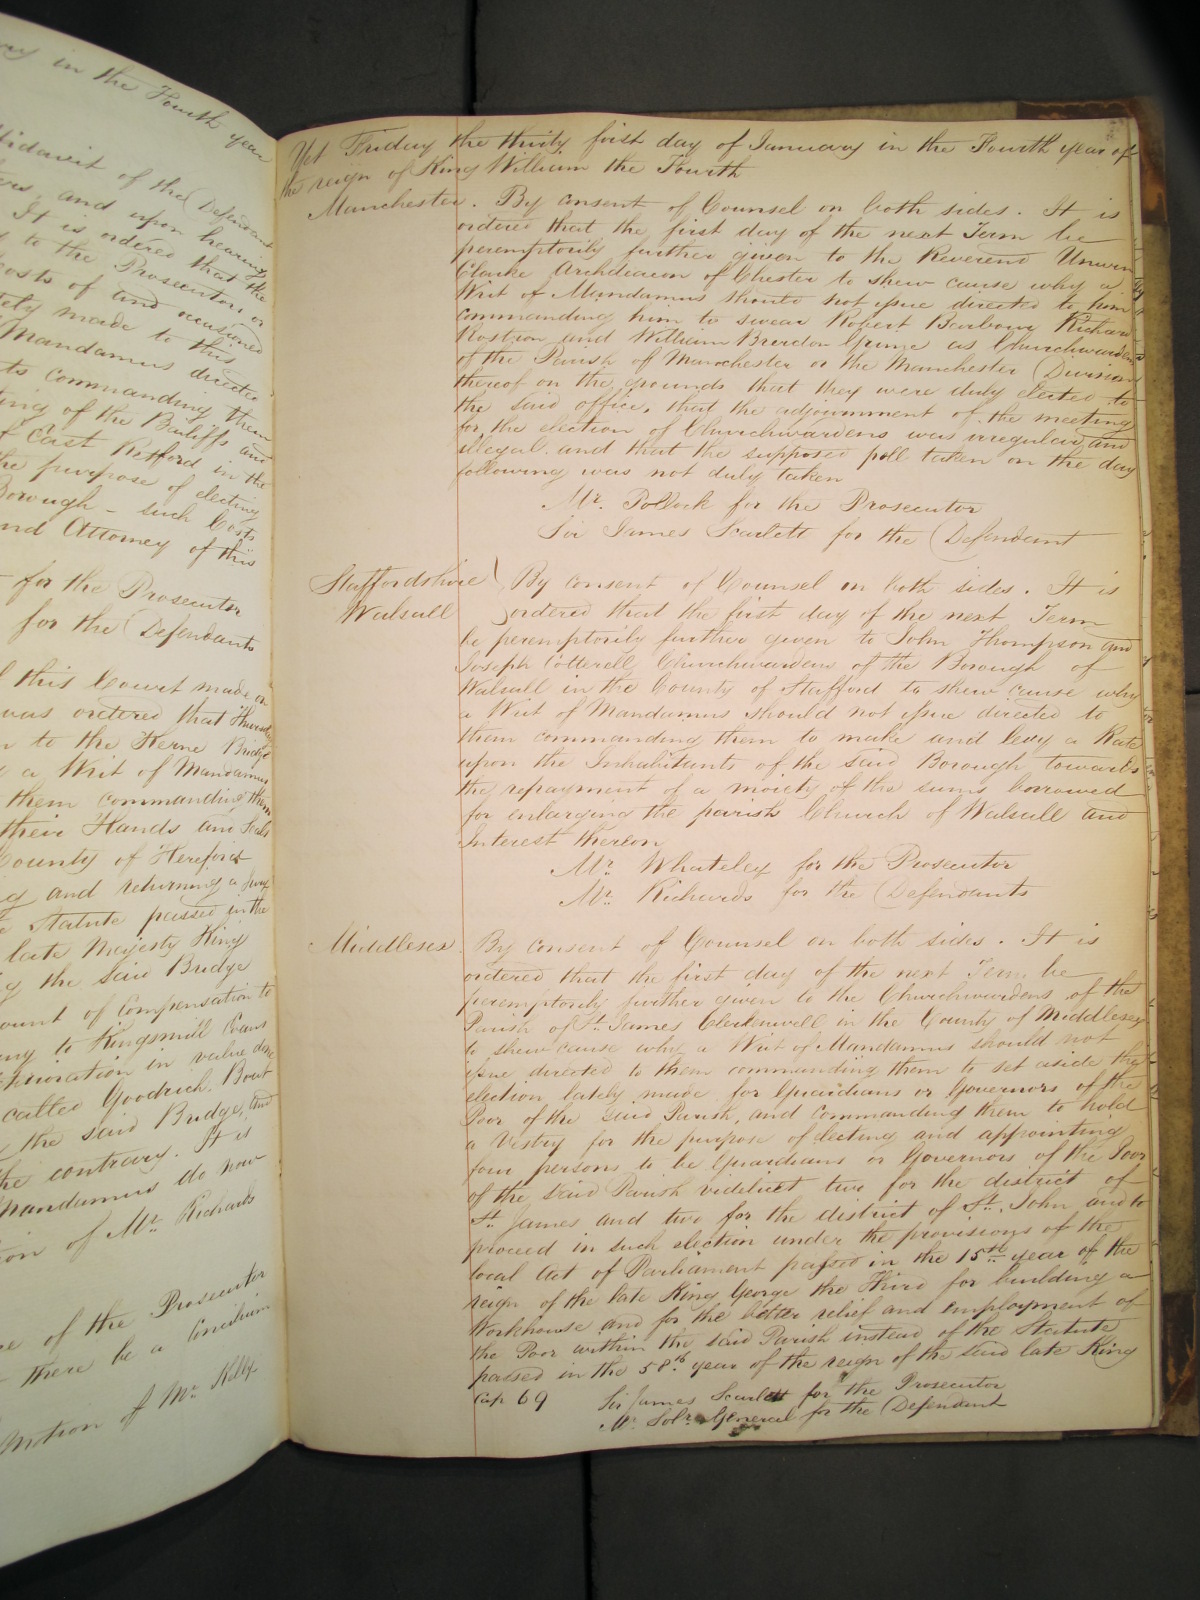 ary in the Fourth year
Affidavit of the Defendant
and upon hearing
It is ordered that the
to the Prosecutor or
Costs of and occasioned
made to this
Mandamus directed
commanding them
of the Bailiffs and
of East Retford in the
the purpose of electing
Borough - such Costs
and Attorney of this
for the Prosecutor
for the Defendants
this Court made on
was ordered that Thursday
to the Kerne Bridge
a Writ of Mandamus
them commanding them
their Hands and Seals
County of Hereford
and returning a Jury
Statute passed in the
late Majesty King
the said Bridge
amount of Compensation to
to Kingsmill Evans
in value done
called Goodrich Boat
the said Bridge, and
the contrary. It is
Mandamus do now
of Mr. Richards
of the Prosecutor
there be a Concilium
Motion of Mr. Kelly
Yet Friday the thirty first day of January in the Fourth year of
the reign of King William the Fourth
Manchester. By consent of Counsel on both sides. It is
ordered that the first day of the next Term be
peremptorily further given to the Reverend Unwin
Clarke Archdeacon of Chester to shew cause why a
Writ of Mandamus should not issue directed to him
commanding him to swear Robert Barbour Richard
Rostron and William Brereton Grime as Churchwardens
of the Parish of Manchester or the Manchester Division
thereof on the grounds that they were duly elected to
the said office, that the adjournment of the meeting
for the election of Churchwardens was irregular and
illegal and that the supposed poll taken on the day
following was not duly taken
Mr. Pollock for the Prosecutor
Sir James Scarlett for the Defendant
Staffordshire
Walsall
By consent of Counsel on both sides. It is
ordered that the first day of the next Term
be peremptorily further given to John Thompson and
Joseph Cotterell Churchwardens of the Borough of
Walsall in the County of Stafford to shew cause why
a Writ of Mandamus should not issue directed to
them commanding them to make and levy a Rate
upon the Inhabitants of the said Borough towards
the repayment of a moiety of the sums borrowed
for enlarging the parish Church of Walsall and
Interest thereon
Mr. Whateley for the Prosecutor
Mr. Richards for the Defendants
Middlesex. By consent of Counsel on both sides. It is
ordered that the first day of the next Term be
peremptorily further given to the Churchwardens of the
Parish of St. James Clerkenwell in the County of Middlesex
to shew cause why a Writ of Mandamus should not
issue directed to them commanding them to set aside the
election lately made for Guardians or Governors of the
Poor of the said Parish, and commanding them to hold
a Vestry for the purpose of electing and appointing
four persons to be Guardians or Governors of the Poor
of the said Parish videlicet two for the district of
St. James and two for the district of St. John and to
proceed in such election under the provisions of the
local Act of Parliament passed in the 15th year of the
reign of the late King George the Third for building a
Workhouse and for the better relief and employment of
the Poor within the said Parish instead of the Statute
passed in the 58th year of the reign of the said late King
Cap 69
Sir James Scarlett for the Prosecutor
Mr. Solr. General for the Defendant